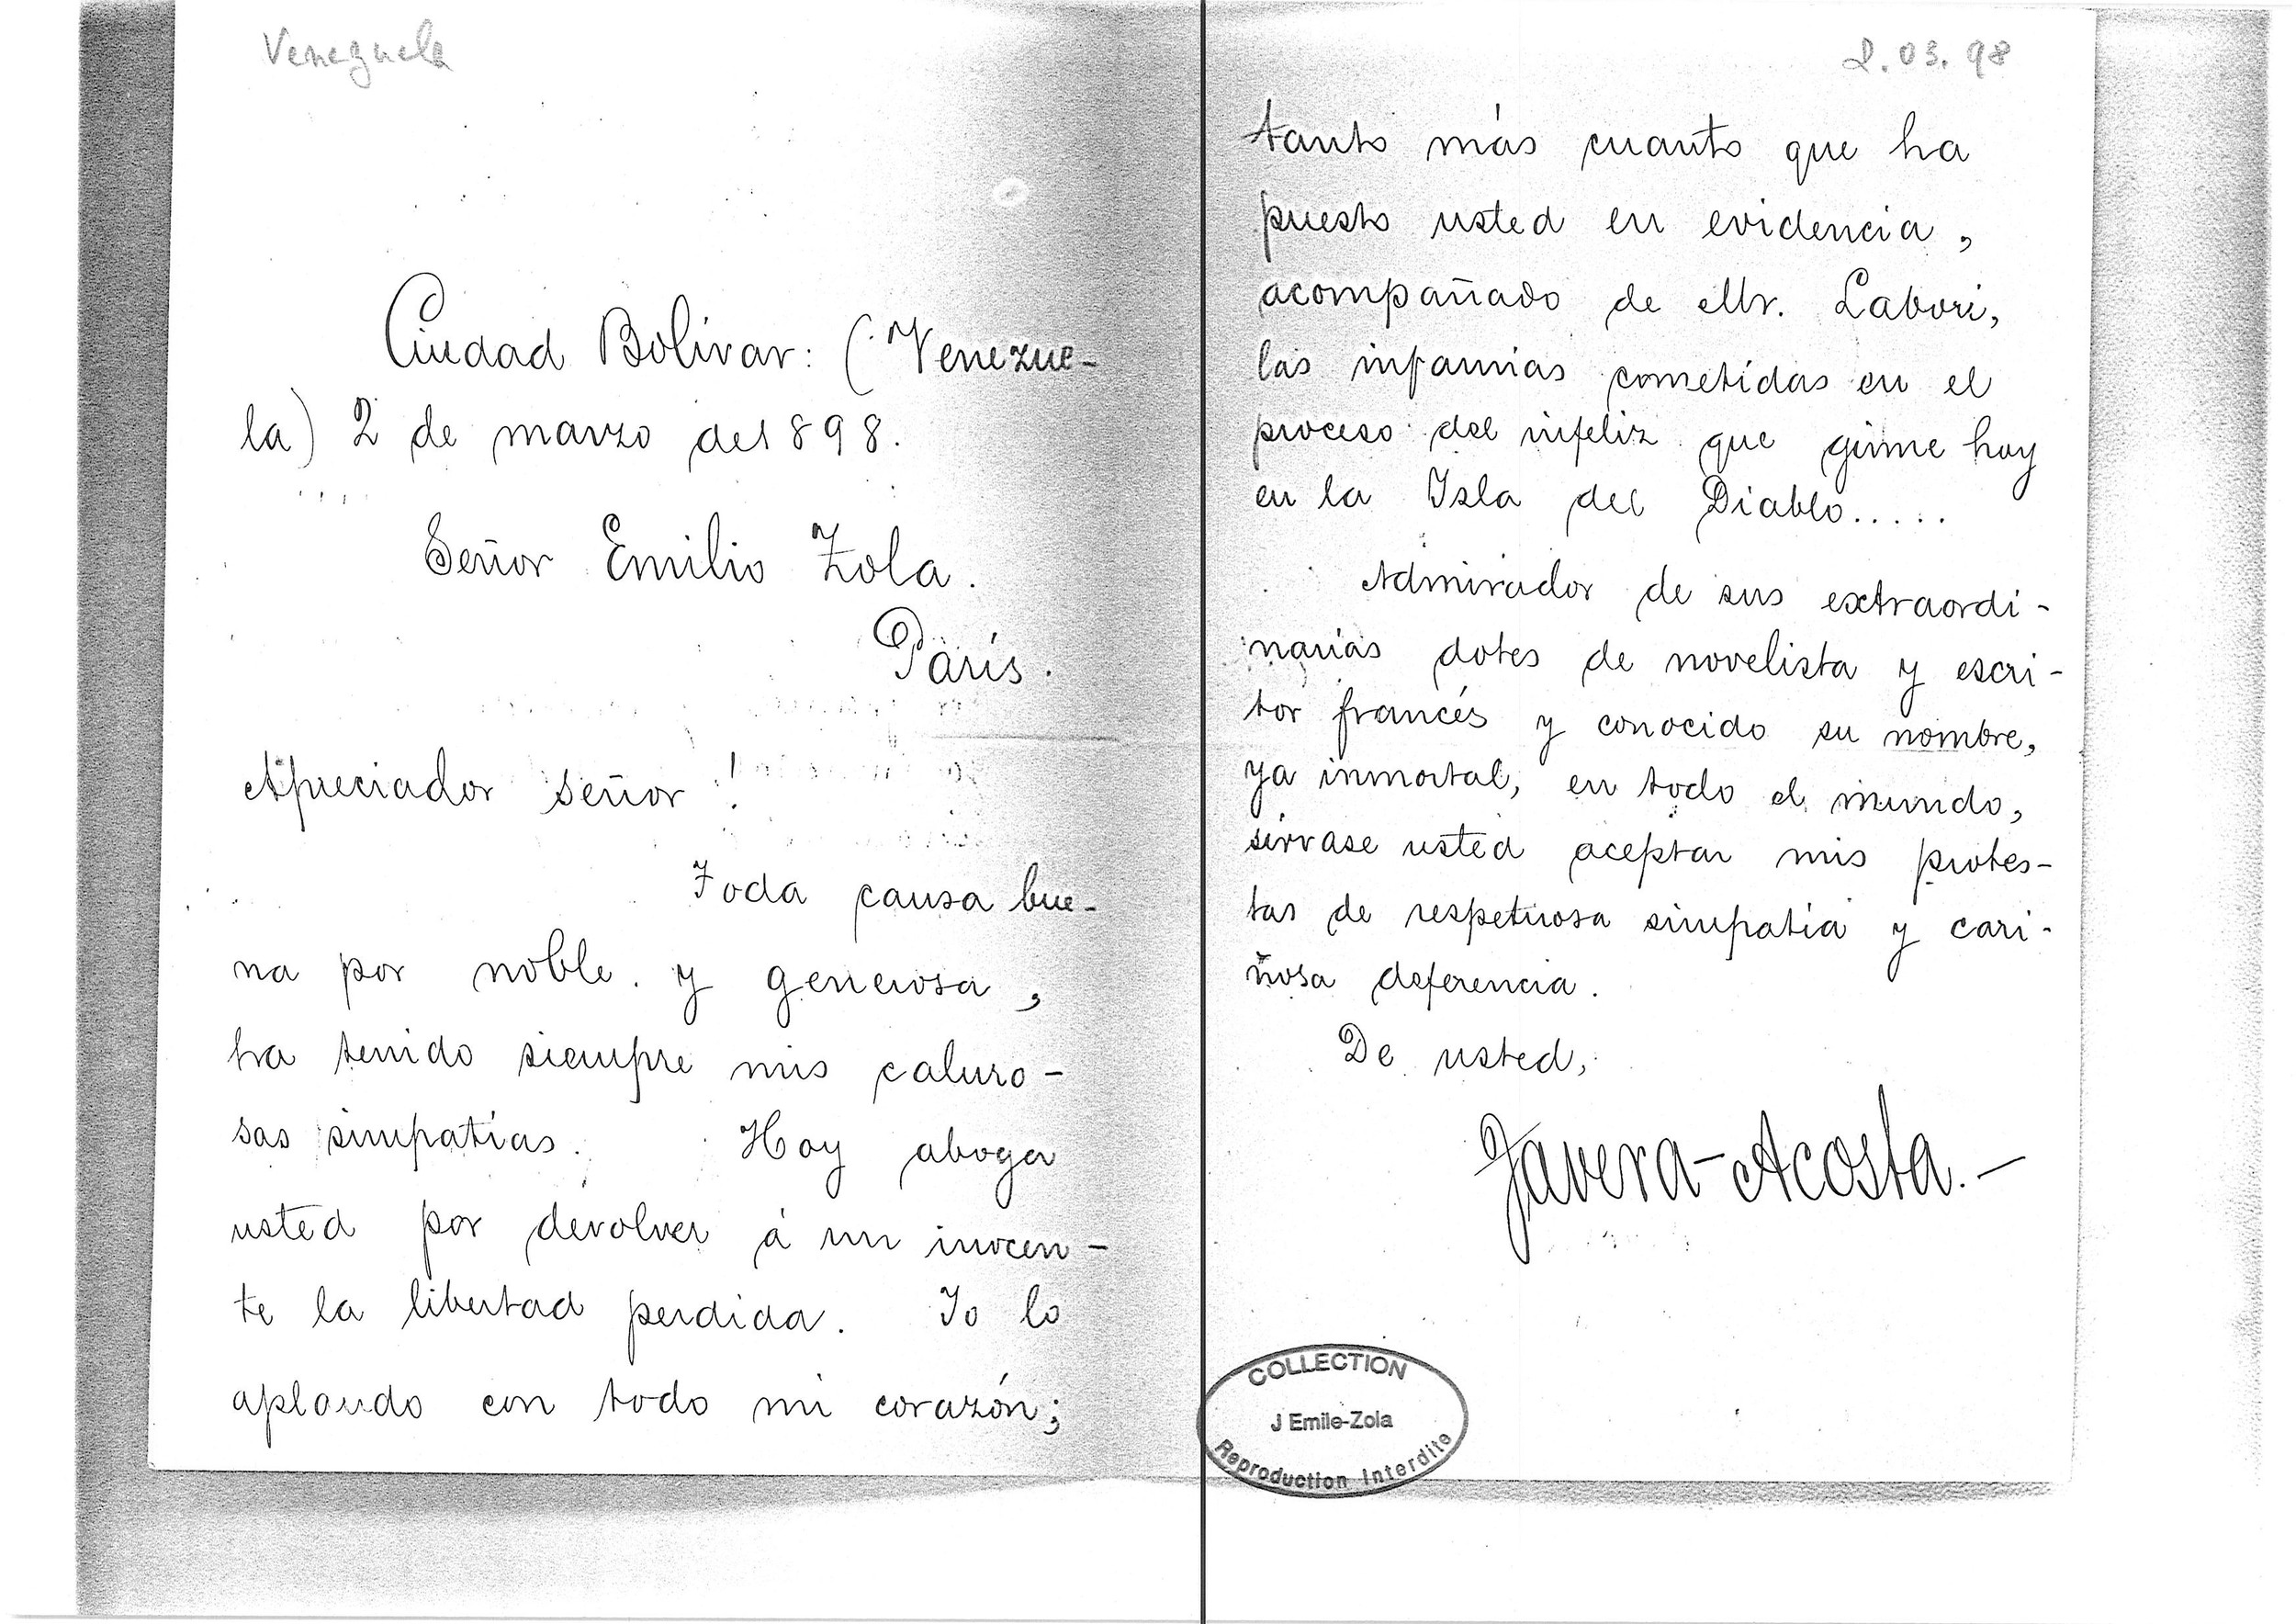 Venezuela
Ciudad Bolívar: (Venezue-
la) 2 de marzo de 1898.
Señor Emilio Zola.
París.
Apreciador señor!
Toda causa bue-
na por noble y generosa,
ha tenido siempre mis caluro-
sas simpatías. Hoy aboga
usted por devolver á un inocen-
te la libertad perdida. Yo lo
aplaudo con todo mi corazón;
2.03.98
tanto más cuanto que ha
puesto usted en evidencia,
acompañado de Mr. Labori,
las infamias cometidas en el
proceso del infeliz que gime hoy
en la Isla del Diablo.....
Admirador de sus extraordi-
narias dotes de novelista y escri-
tor francés y conocido su nombre,
ya inmortal, en todo el mundo,
sírvase usted aceptar mis protes-
tas de respetuosa simpatía y cari-
ñosa deferencia.
De usted,
Tavera-Acosta.-
COLLECTION
J Emile-Zola
Reproduction Interdite